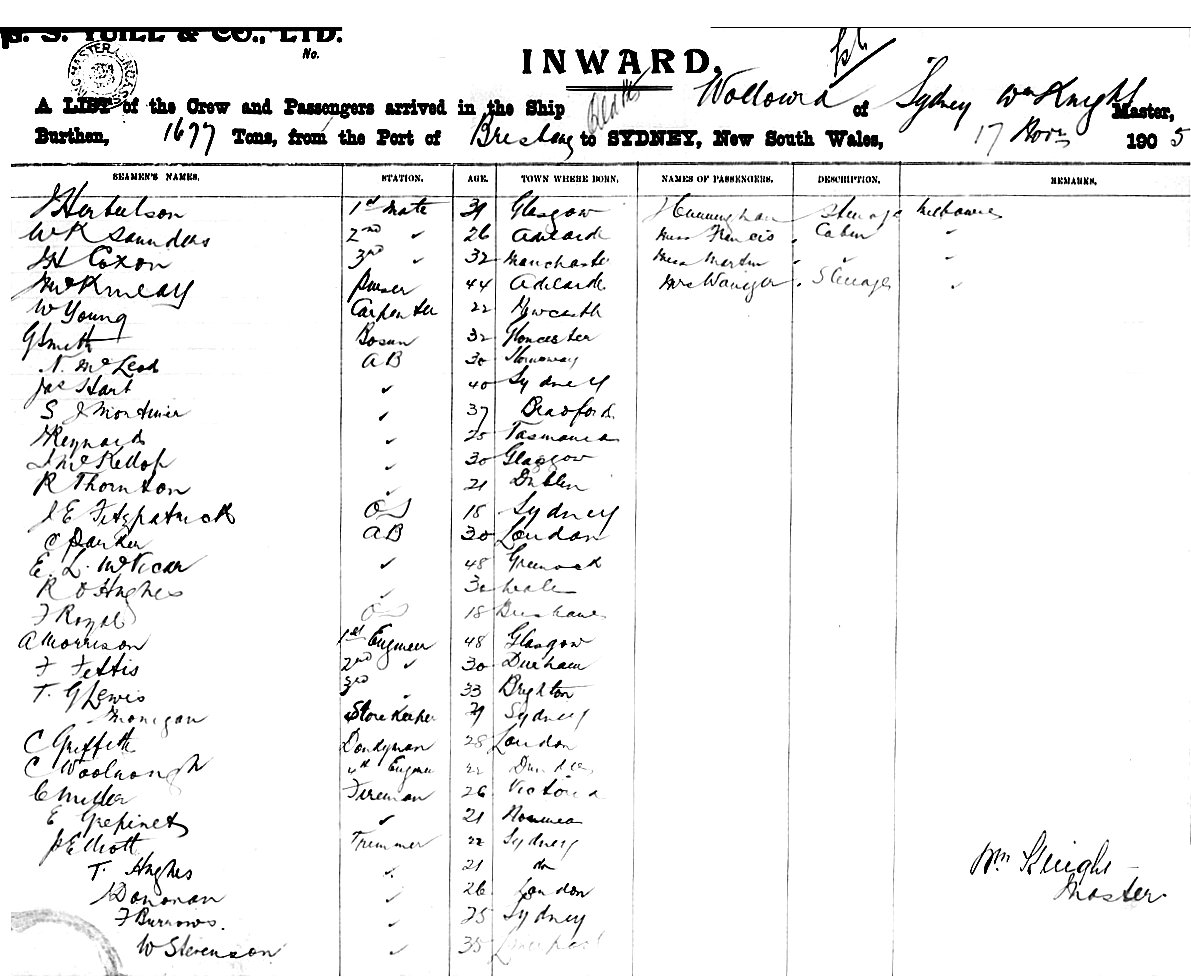 S. YUILL & CO., LTD.
No.
INWARD.
A LIST of the Crew and Passengers arrived in the Ship Wollowra of Sydney Wm Knight Master,
Burthen, 1677 Tons, from the Port of Brisbane to SYDNEY, New South Wales, 17 Novr 1905
SEAMEN'S NAMES. STATION. AGE. TOWN WHERE BORN. NAMES OF PASSENGERS. DESCRIPTION. REMARKS.
J Herbelson 1st Mate 39 Glasgow J Cunningham Steerage Melbourne
W R Saunders 2nd " 26 Adelaide Miss Francis Cabin "
H Coxon 3rd " 32 Manchester Miss Martin " "
McKinlay Purser 44 Adelaide Mrs Steerage "
W Young Carpenter 22 Newcastle
G Smith Bosun 32 Gloucester
N. McLeod AB 30 Stornoway
Jas Hart " 40 Sydney
S J Mortimer " 37 Bradford
Reynards " 25 Tasmania
J McKellop " 30 Glasgow
R Thornton " 21 Dublin
J E Fitzpatrick OS 18 Sydney
C Parker AB 30 London
E. L. McVicar " 48 Greenock
R O Hughes " 30 Wales
F Royal OS 18 Brisbane
A Morrison 1st Engineer 48 Glasgow
F Fettis 2nd " 30 Durham
T. G Lewis 3rd " 33 Brighton
Monigan Store Keeper Sydney
C Griffith Donkeyman 28 London
C Woolnough 4th Engineer 22 Dundee
C Miller Fireman 26 Victoria
E Grepinet " 21 Noumea
J Elliott Trimmer 22 Sydney
T. Hughes " 21 do
Donovan " 26 London
F Burrows. " 25 Sydney
W Stevenson " 35 Liverpool
Wm Knight
Master